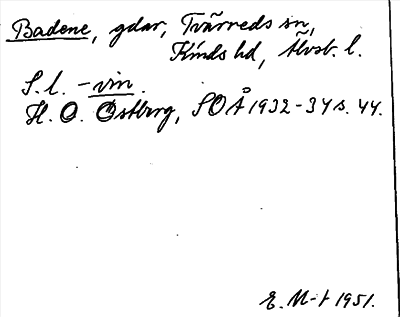 Badene, gdar, Tvärreds sn,
Kinds hd, Älvsb. l.
S. l. -vin.
H. O. Östberg, SOÅ 1932-34 s. 44.
E. M-t 1951.